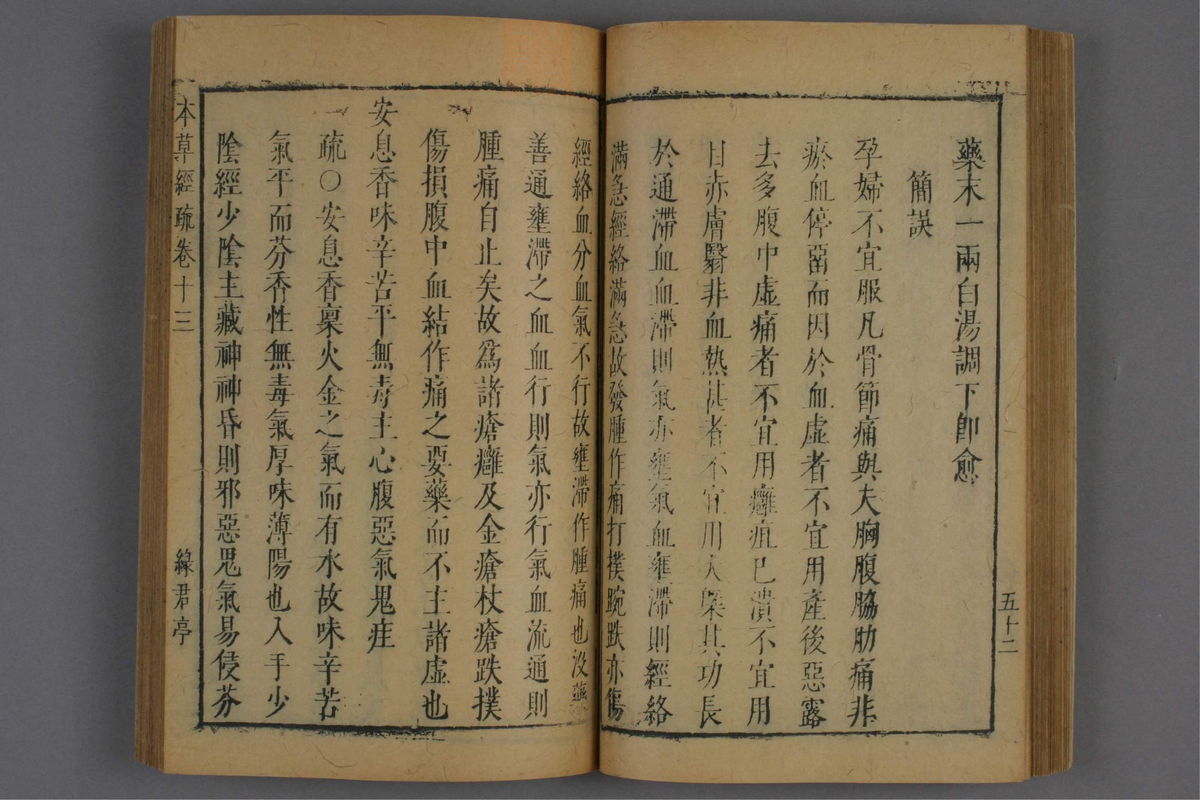 藥末一兩白湯調下卽愈
簡誤
孕婦不宜服凡骨節痛與夫胸腹脇肋痛非
瘀血停畱而因於血虛者不宜用產後惡露
去多腹中虛痛者不宜用癰疽已潰不宜用
目赤膚翳非血熱甚者不宜用大槩其功長
於通滯血血滯則氣亦壅氣血壅滯則經絡
滿急經絡滿急故發腫作痛打撲踠跌亦傷
五十二
經絡血分血氣不行故壅滯作腫痛也沒藥
善通壅滯之血血行則氣亦行氣血流通則
腫痛自止矣故爲諸瘡癰及金瘡杖瘡跌撲
傷損腹中血結作痛之要藥而不主諸虛也
安息香味辛苦平無毒主心腹惡氣鬼疰
疏〇安息香稟火金之氣而有水故味辛苦
氣平而芬香性無毒氣厚味薄陽也入手少
陰經少陰主藏神神昏則邪惡鬼氣易侵芬
本草經疏卷十三
綠君亭